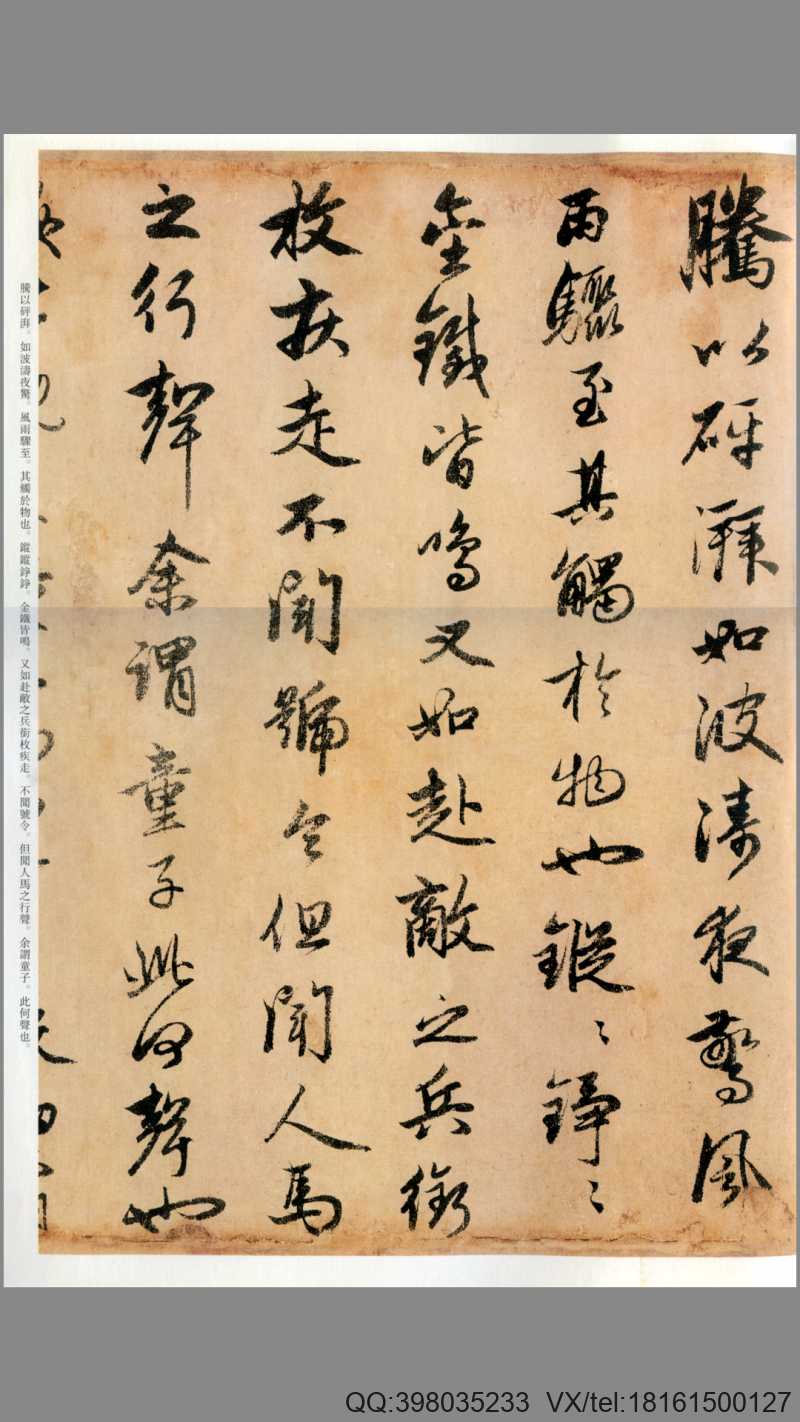 騰以砰湃如波濤夜驚風
雨驟至其觸於物也鏦〻錚〻
金鐵皆鳴又如赴敵之兵銜
枚疾走不聞號令但聞人馬
之行聲余謂童子此何聲也
騰以砰湃。如波濤夜驚。風雨驟至。其觸於物也。鏦鏦錚錚。金鐵皆鳴。又如赴敵之兵銜枚疾走。不聞號令。但聞人馬之行聲。余謂童子。此何聲也。
QQ:398035233 VX/tel:18161500127